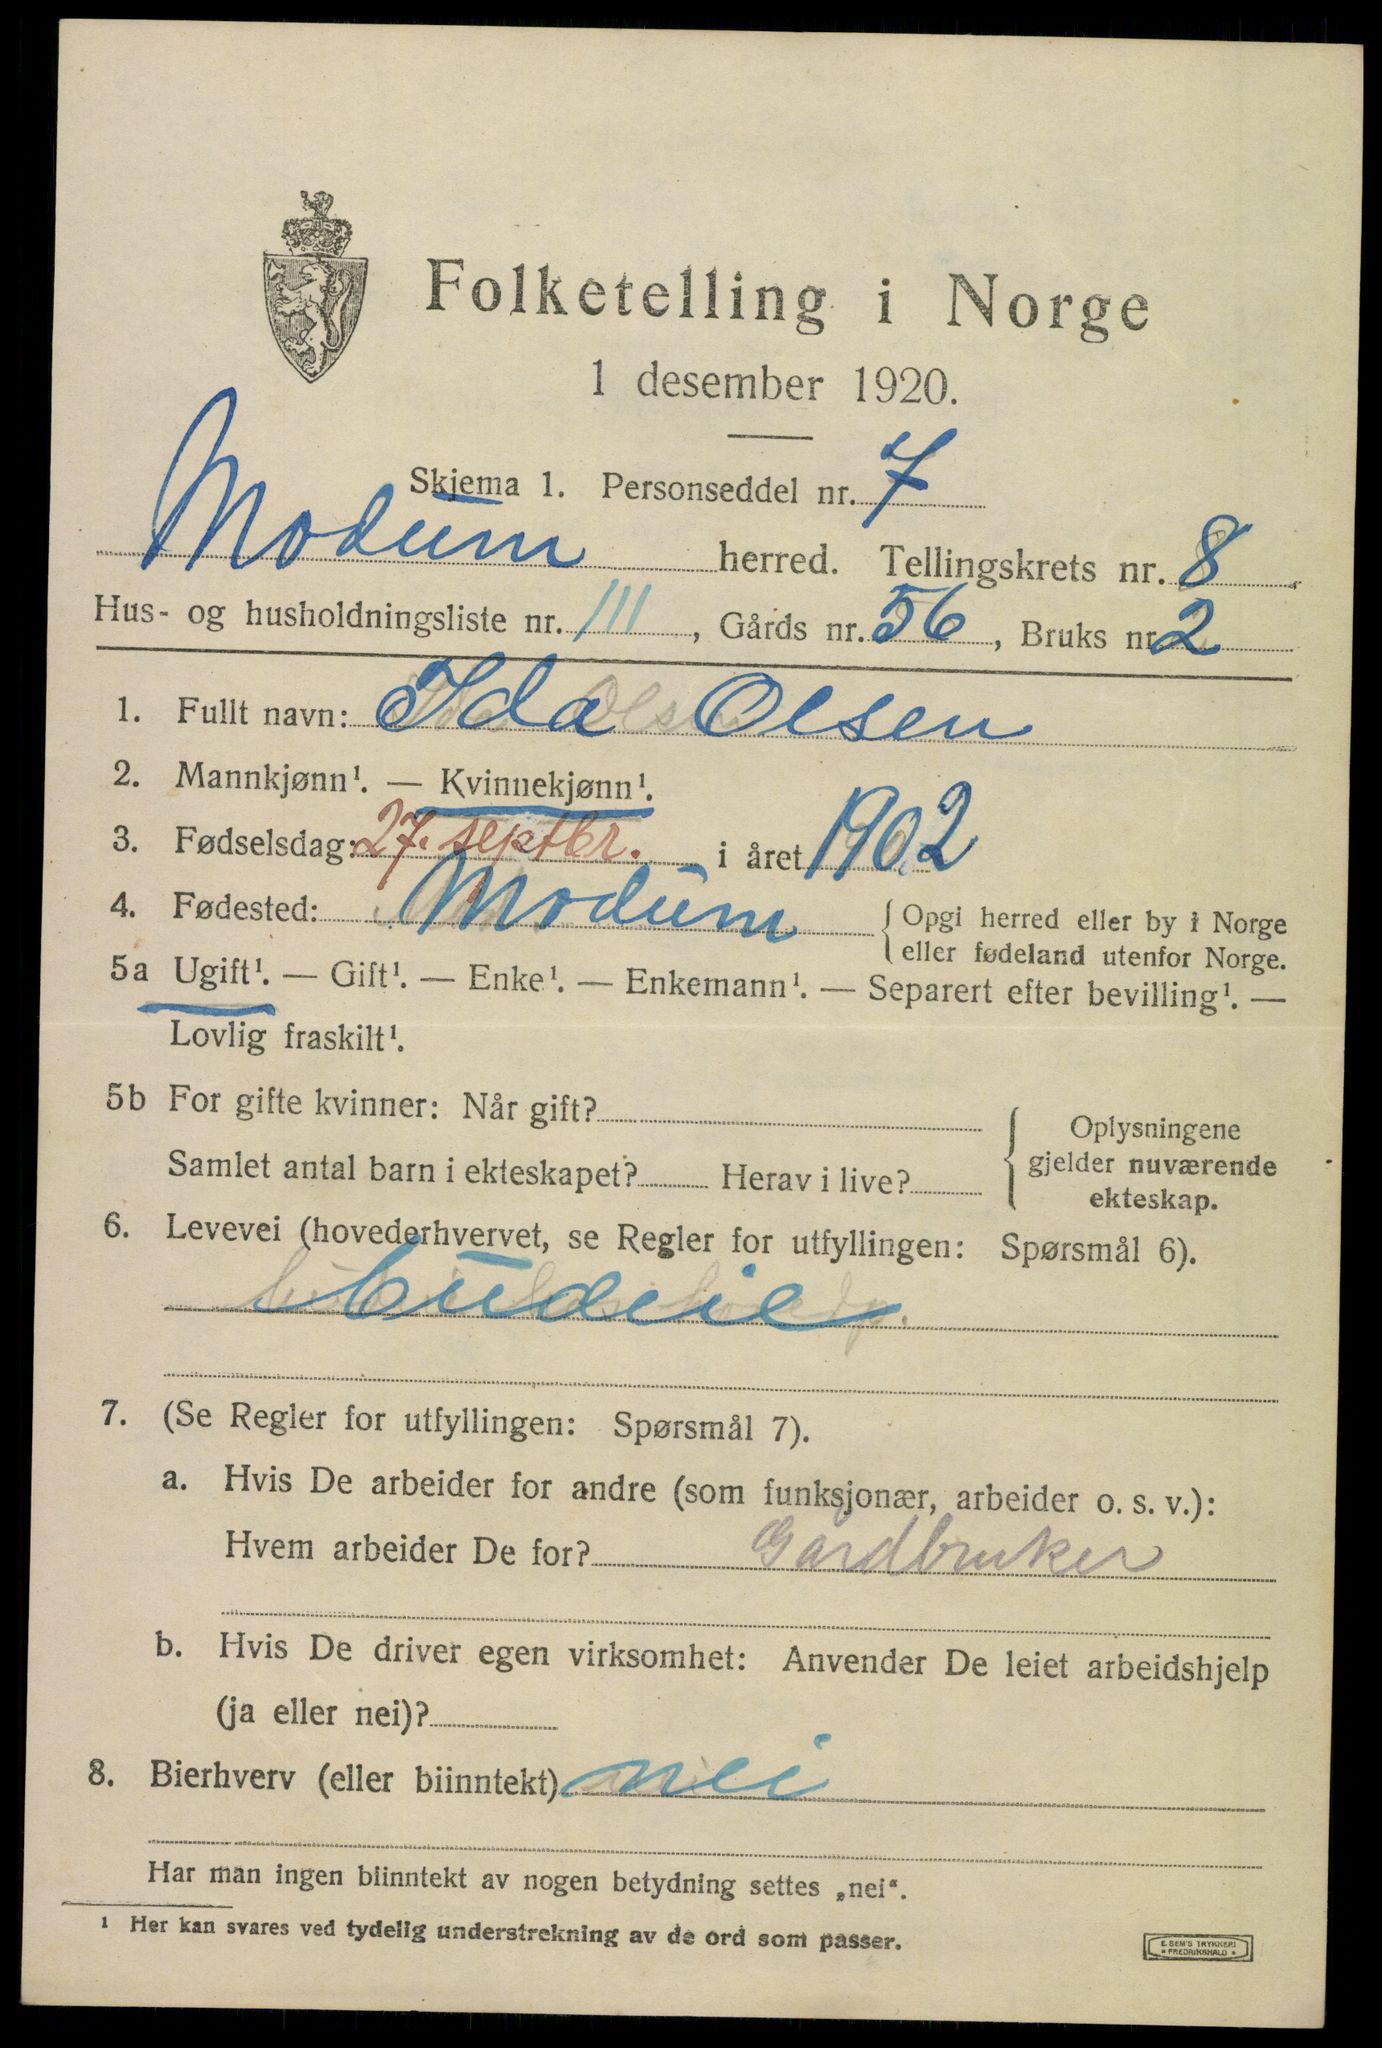 Folketelling i Norge
1 desember 1920.
Skjema 1. Personseddel nr. 7
Modum herred. Tellingskrets nr. 8
Hus- og husholdningsliste nr. 111, Gårds nr. 56, Bruks nr. 2
1. Fullt navn: Ida Olsen
2. Mannkjønn¹. — Kvinnekjønn¹.
3. Fødselsdag: 27. septbr. i året 1902
4. Fødested: Modum { Opgi herred eller by i Norge
eller fødeland utenfor Norge.
5a Ugift¹. — Gift¹. — Enke¹. — Enkemann¹. — Separert efter bevilling¹. —
Lovlig fraskilt¹.
5b For gifte kvinner: Når gift?
Samlet antal barn i ekteskapet? Herav i live?
{ Oplysningene
gjelder nuværende
ekteskap.
6. Levevei (hovederhvervet, se Regler for utfyllingen: Spørsmål 6).
budeie
7. (Se Regler for utfyllingen: Spørsmål 7).
a. Hvis De arbeider for andre (som funksjonær, arbeider o. s. v.):
Hvem arbeider De for? Gardbruker
b. Hvis De driver egen virksomhet: Anvender De leiet arbeidshjelp
(ja eller nei)?
8. Bierhverv (eller biinntekt) nei
Har man ingen biinntekt av nogen betydning settes „nei“.
¹ Her kan svares ved tydelig understrekning av de ord som passer.
E. SEM'S TRYKKERI
FREDRIKSHALD